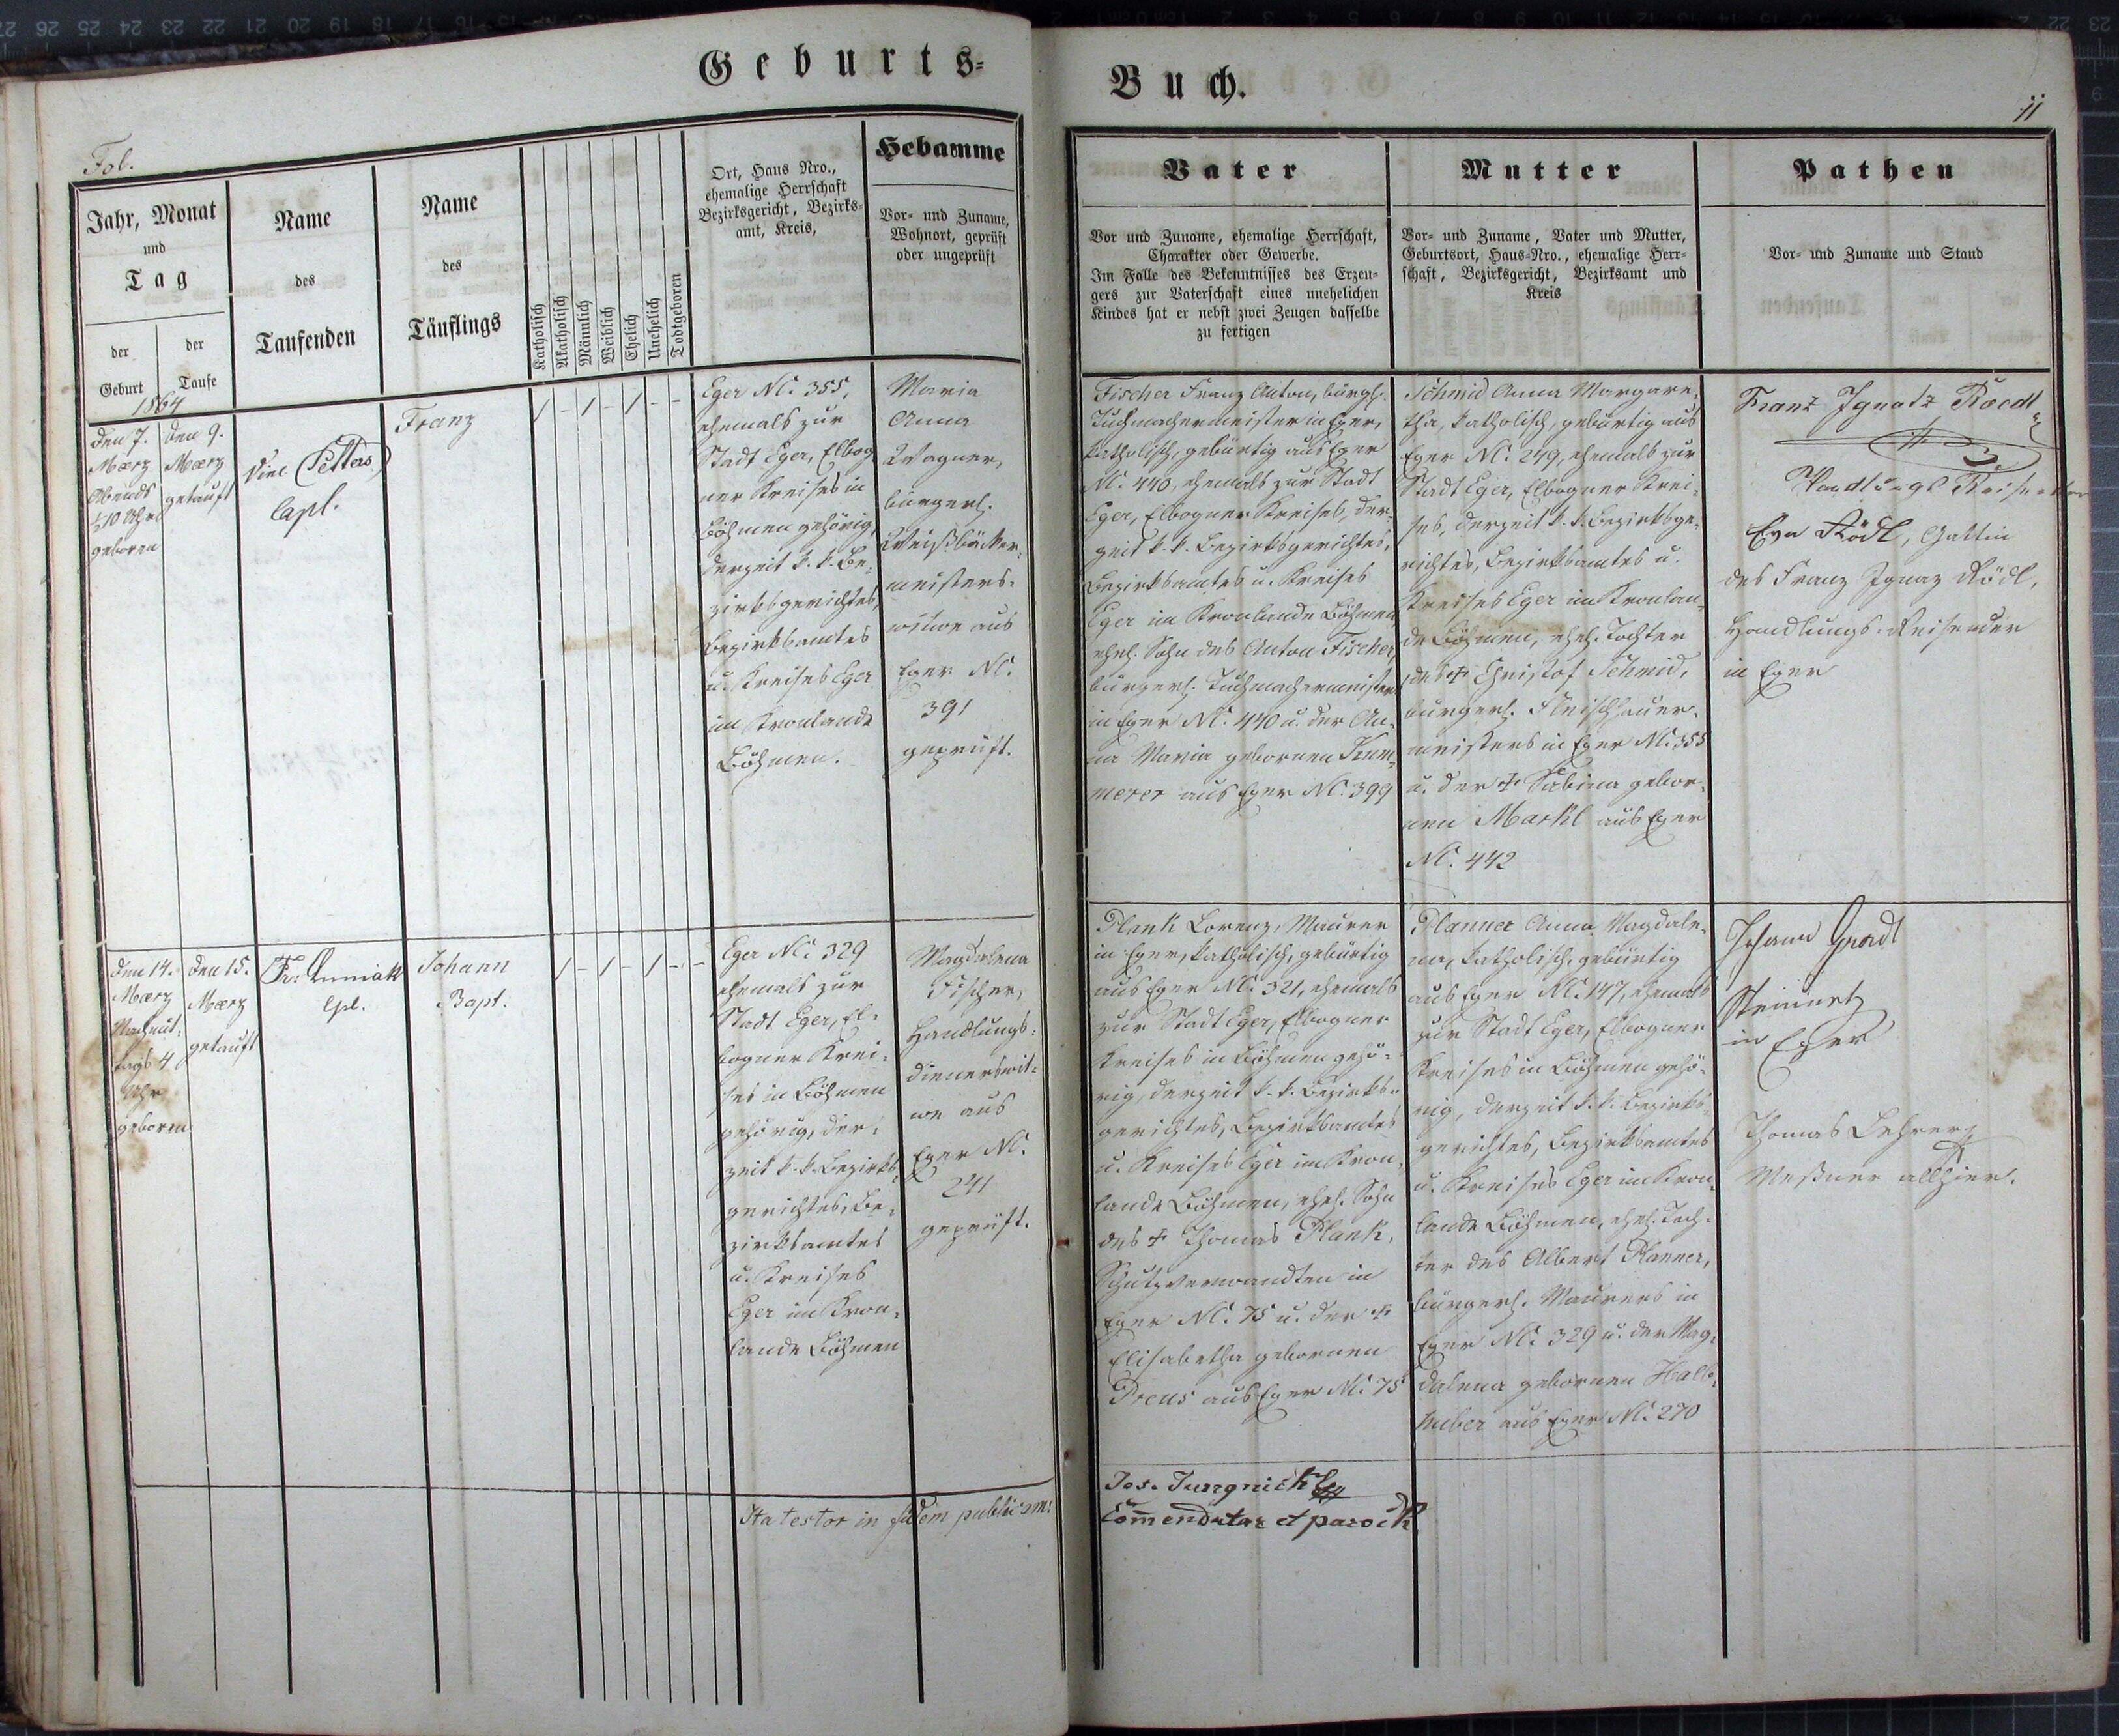 Geburts-
Buch.
Fol.
11
Jahr, Monat
und
Tag
der
Geburt
der
Taufe
Name
des
Taufenden
Name
des
Täuflings
Katholisch
Akatholisch
Männlich
Weiblich
Ehelich
Unehelich
Todtgeboren
Ort, Haus Nro.,
ehemalige Herrschaft
Bezirksgericht, Bezirks-
amt, Kreis,
Hebamme
Vor- und Zuname,
Wohnort, geprüft
oder ungeprüft
Vater
Vor und Zuname, ehemalige Herrschaft,
Charakter oder Gewerbe.
Im Falle des Bekenntnisses des Erzeu-
gers zur Vaterschaft eines unehelichen
Kindes hat er nebst zwei Zeugen dasselbe
zu fertigen
Mutter
Vor- und Zuname, Vater und Mutter,
Geburtsort, Haus-Nro., ehemalige Herr-
schaft, Bezirksgericht, Bezirksamt und
Kreis
Pathen
Vor- und Zuname und Stand
1864
den 7.
Maerz
Abends
½10 Uhr
geboren
den 9.
Maerz
getauft
Vinc Petters
Capl.
Franz
1 - 1 - 1 - -
Eger NC. 355,
ehemals zur
Stadt Eger, Elbog-
ner Kreises in
Böhmen gehörig,
derzeit k. k. Be-
zirksgerichtes,
Bezirksamtes
u. Kreises Eger
im Kronlande
Böhmen.
Maria
Anna
Wagner,
bürgerl.
Weißbäcker-
meisters-
witwe aus
Eger NC.
391
geprüft.
Fischer Franz Anton, bürgl.
Tuchmachermeister in Eger,
katholisch, gebürtig aus Eger
NC. 440, ehemals zur Stadt
Eger, Elbogner Kreises, der-
zeit k. k. Bezirksgerichtes,
Bezirksamtes u. Kreises
Eger im Kronlande Böhmen
ehel. Sohn des Anton Fischer,
bürgerl. Tuchmachermeister
in Eger NC. 440 u. der An-
na Maria gebornen Kum-
merer aus Eger NC. 399
Schmid Anna Margare-
tha, katholisch, gebürtig aus
Eger NC. 249, ehemals zur
Stadt Eger, Elbogner Krei-
ses, derzeit k. k. Bezirksge-
richtes, Bezirksamtes u.
Kreises Eger im Kronlan-
de Böhmen, ehel. Tochter
des + Christof Schmid,
bürgerl. Fleischhauer-
meisters in Eger NC. 355
u. der + Sabina gebor-
nen Markl aus Eger
NC. 442
Franz Ignatz Roedl
Handlungs Reisender
Eva Rödl, Gattin
des Franz Ignaz Rödl,
Handlungs-Reisender
in Eger
den 14.
Maerz
Nachmit-
tags 4
Uhr
geboren
den 15.
Maerz
getauft
Cpl.
Johann
Bapt.
1 - 1 - 1 - -
Eger NC. 329
ehemals zur
Stadt Eger, El-
bogner Krei-
ses in Böhmen
gehörig, der-
zeit k. k. Bezirks-
gerichtes, Be-
zirksamtes
u. Kreises
Eger im Kron-
lande Böhmen
Magdalena
Fischer,
Handlungs-
dienerswit-
we aus
Eger NC.
241
geprüft.
Plank Lorenz, Maurer
in Eger, katholisch, gebürtig
aus Eger NC. 321, ehemals
zur Stadt Eger, Elbogner
Kreises in Böhmen gehö-
rig, derzeit k. k. Bezirks-
gerichtes, Bezirksamtes
u. Kreises Eger im Kron-
lande Böhmen, ehel. Sohn
des + Thomas Plank,
Schutzverwandten in
Eger NC. 75 u. der +
Elisabetha gebornen
Preus aus Eger NC. 75
Planner Anna Magdale-
na, katholisch, gebürtig
aus Eger NC. 147, ehemals
zur Stadt Eger, Elbogner
Kreises in Böhmen gehö-
rig, derzeit k. k. Bezirks-
gerichtes, Bezirksamtes
u. Kreises Eger im Kron-
lande Böhmen, ehel. Toch-
ter des Albert Planner,
bürgerl. Maurers in
Eger NC. 329 u. der Mag-
dalena gebornen Halb-
huber aus Eger NC. 270
Johann Gradl
Steinmetz
in Eger
Thomas Lehrer
Meßner allhier.
Ita testor in fidem publicam:
Jos.
Comendatar et paroch